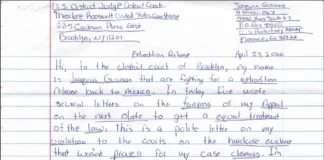 U.S. District Judge District Court
Theodore Roosevelt United States Courthouse
225 Cadman Plaza East
Brooklyn, NY 11201
Joaquin Guzman
Florence, CO
Extradition Release
April 23, 2026
Hi, to the district court of Brooklyn, my name
is Joaquin Guzman that are fighting for a extradition
release back to mexico. In today I've wrote
several letters on the of my Appeal
on the next date to get a equal treatment
of the law. This is a polite letter on my
violation to the courts on the evidence
that wasn't proven for my case clearly. In